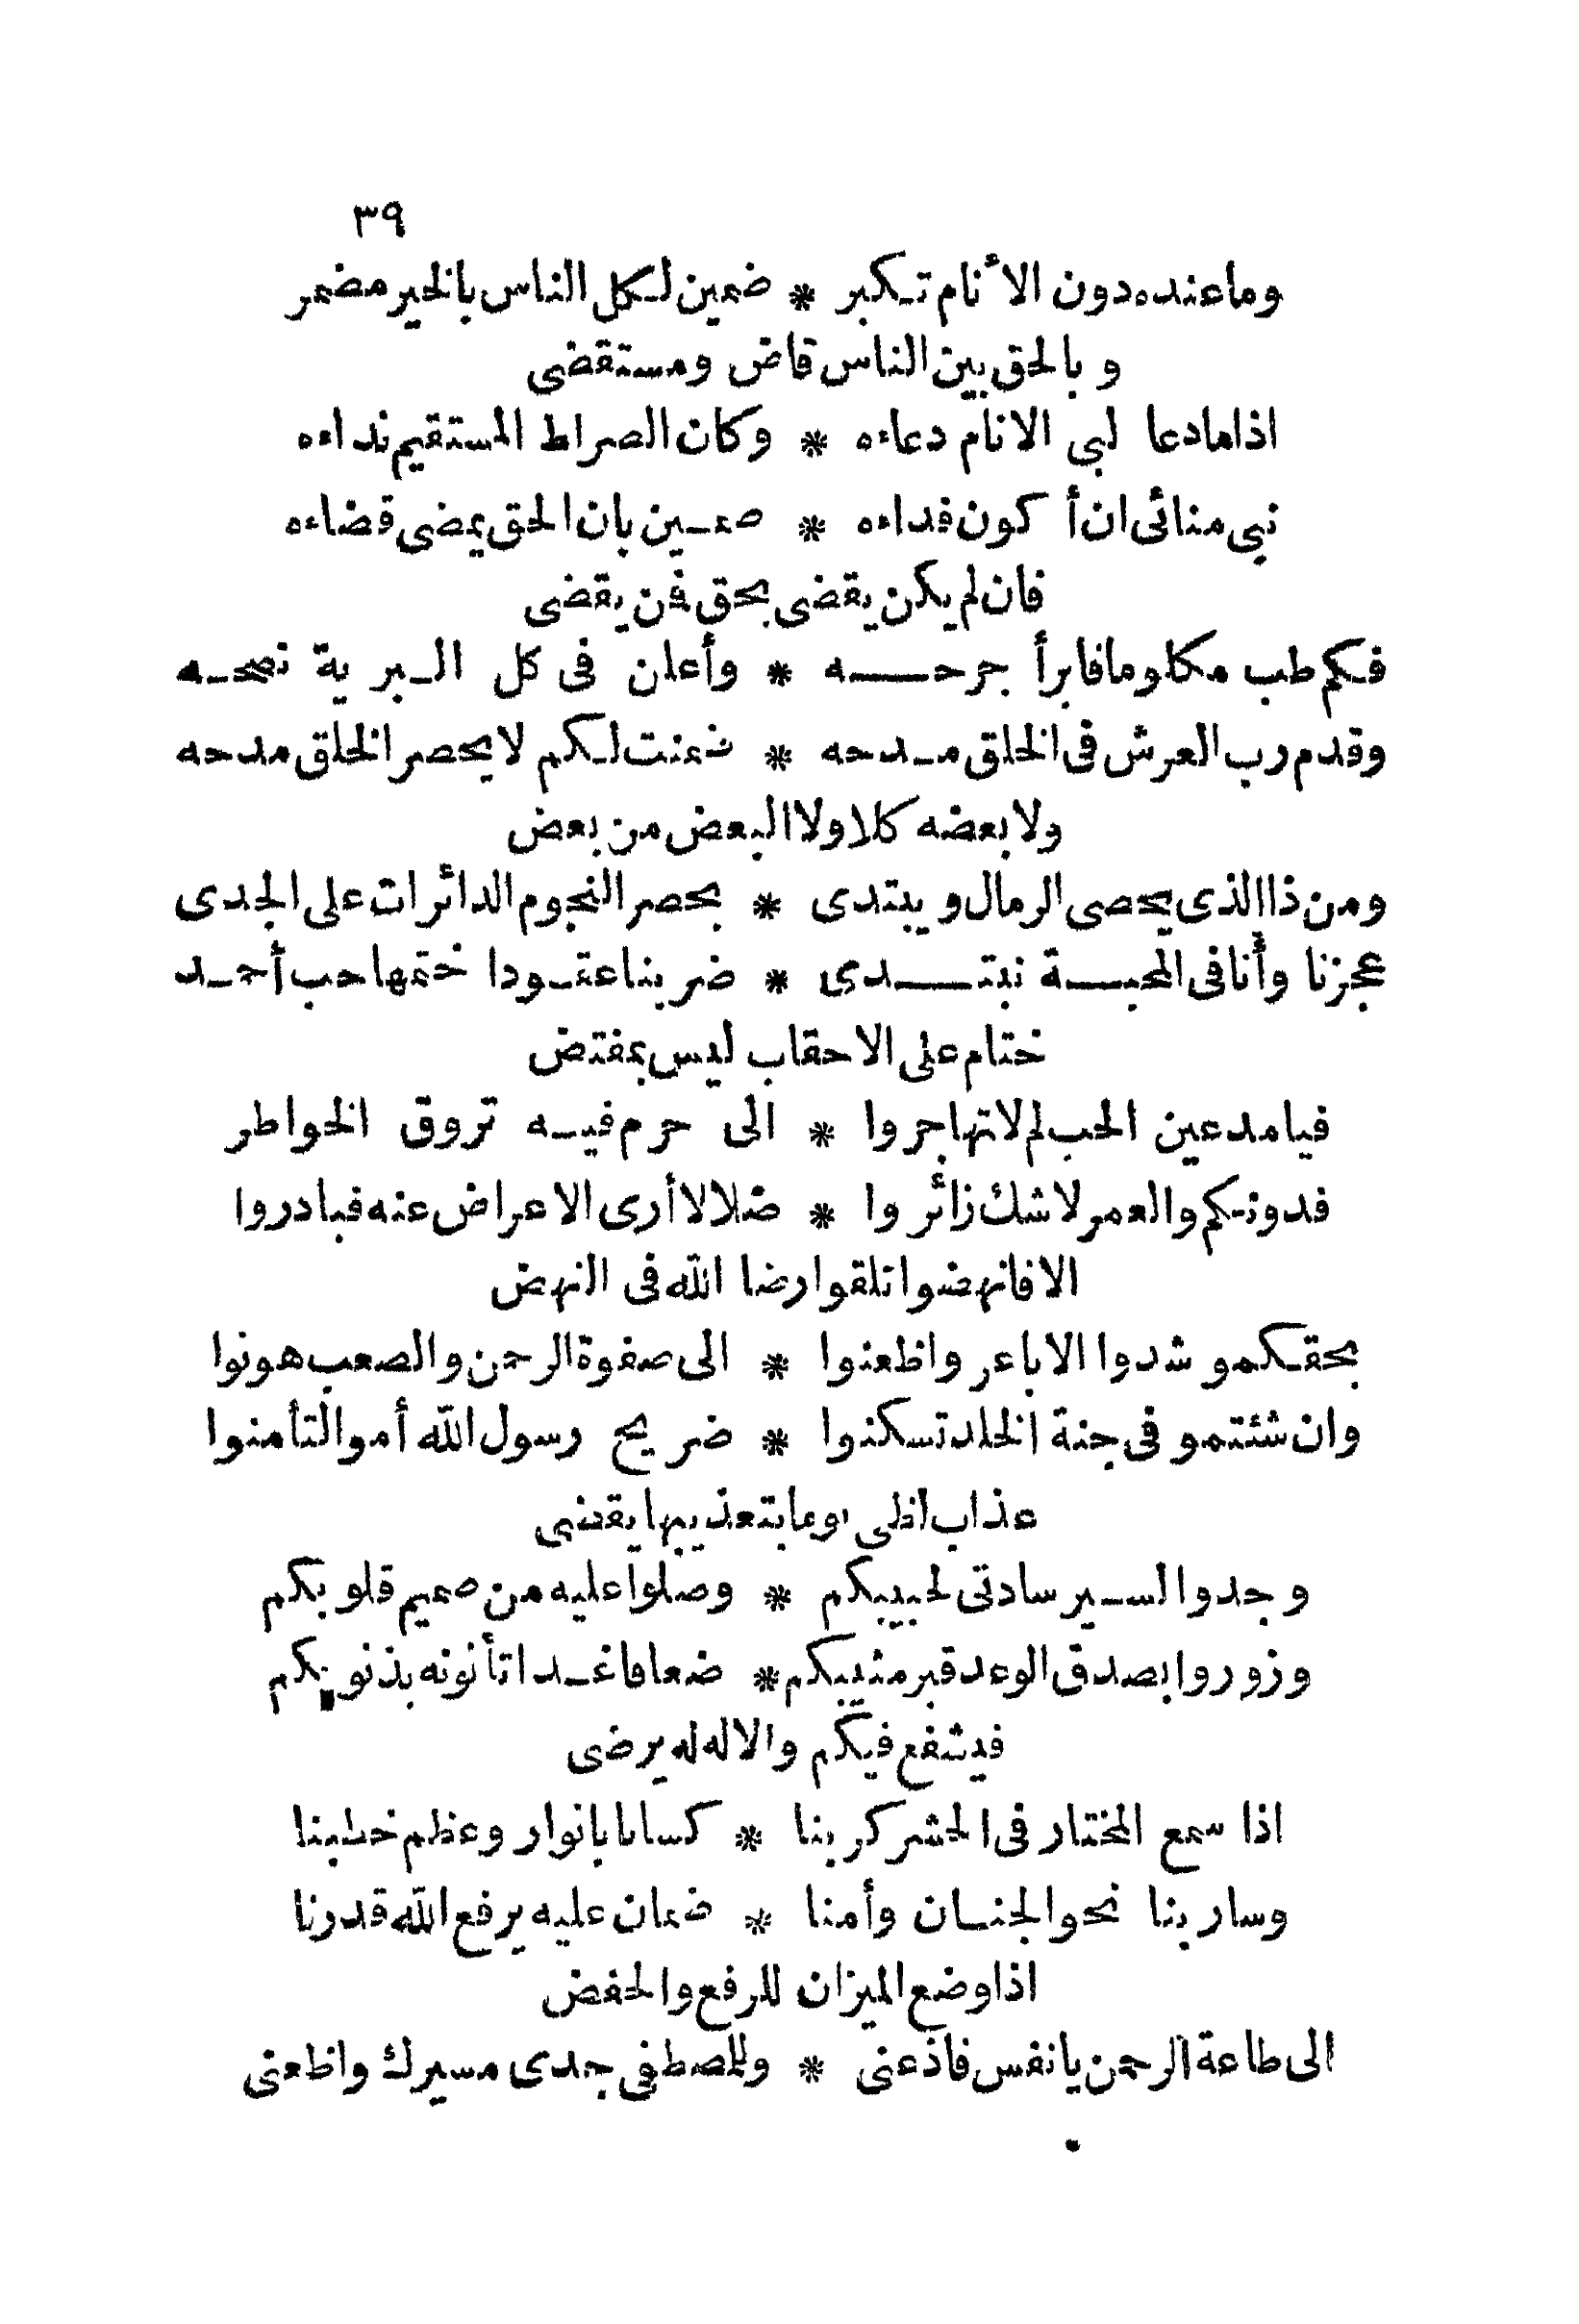 ٣٩
وما عنده دون الأنام تكبر * ضمين لكل الناس بالخير مضمر
وبالحق بين الناس قاض ومستقضى
اذا ما دعا لبى الانام دعاءه * وكان الصراط المستقيم نداءه
نبى منائى ان أكون فداءه * ضمين بان الحق يمضى قضاءه
فان لم يكن يقضى بحق فمن يقضى
فكم طب مكلوما فابرأ جرحه * وأعلن فى كل البرية نصحه
وقدم رب العرش فى الخلق مدحه * ضمنت لكم لا يحصر الخلق مدحه
ولا بعضه كلا ولا البعض من بعض
ومن ذا الذى يحصى الرمال ويبتدى * بحصر النجوم الدائرات على الجدى
عجزنا وأنا فى المحبة نبتدى * ضربنا عقودا ختمها حب أحمد
ختام على الاحقاب ليس بمفتض
فيا مدعين الحب لم لا تهاجروا * الى حرم فيه تروق الخواطر
فدونكم والعمر لا شك زائر وا * ضلالا أرى الاعراض عنه فبادروا
الا فانهضوا تلقوا رضا الله فى النهض
بحقكمو شدوا الاباعر واظعنوا * الى صفوة الرحمن والصعب هونوا
وان شئتمو فى جنة الخلد تسكنوا * ضريح رسول الله أموا لتأمنوا
عذاب لظى يوما بتعذيبها يقضى
وجدوا السير سادتى لحبيبكم * وصلوا عليه من صميم قلوبكم
وزوروا بصدق الوعد قبر مثيبكم * ضعافا غدا تأتونه بذنوبكم
فيشفع فيكم والاله له يرضى
اذا سمع المختار فى الحشر كربنا * كسانا بانوار وعظم خطبنا
وسار بنا نحو الجنان وأمنا * ضمان عليه يرفع الله قدرنا
اذا وضع الميزان للرفع والخفض
الى طاعة الرحمن يا نفس فاذعنى * وللمصطفى جدى مسيرك واظعنى